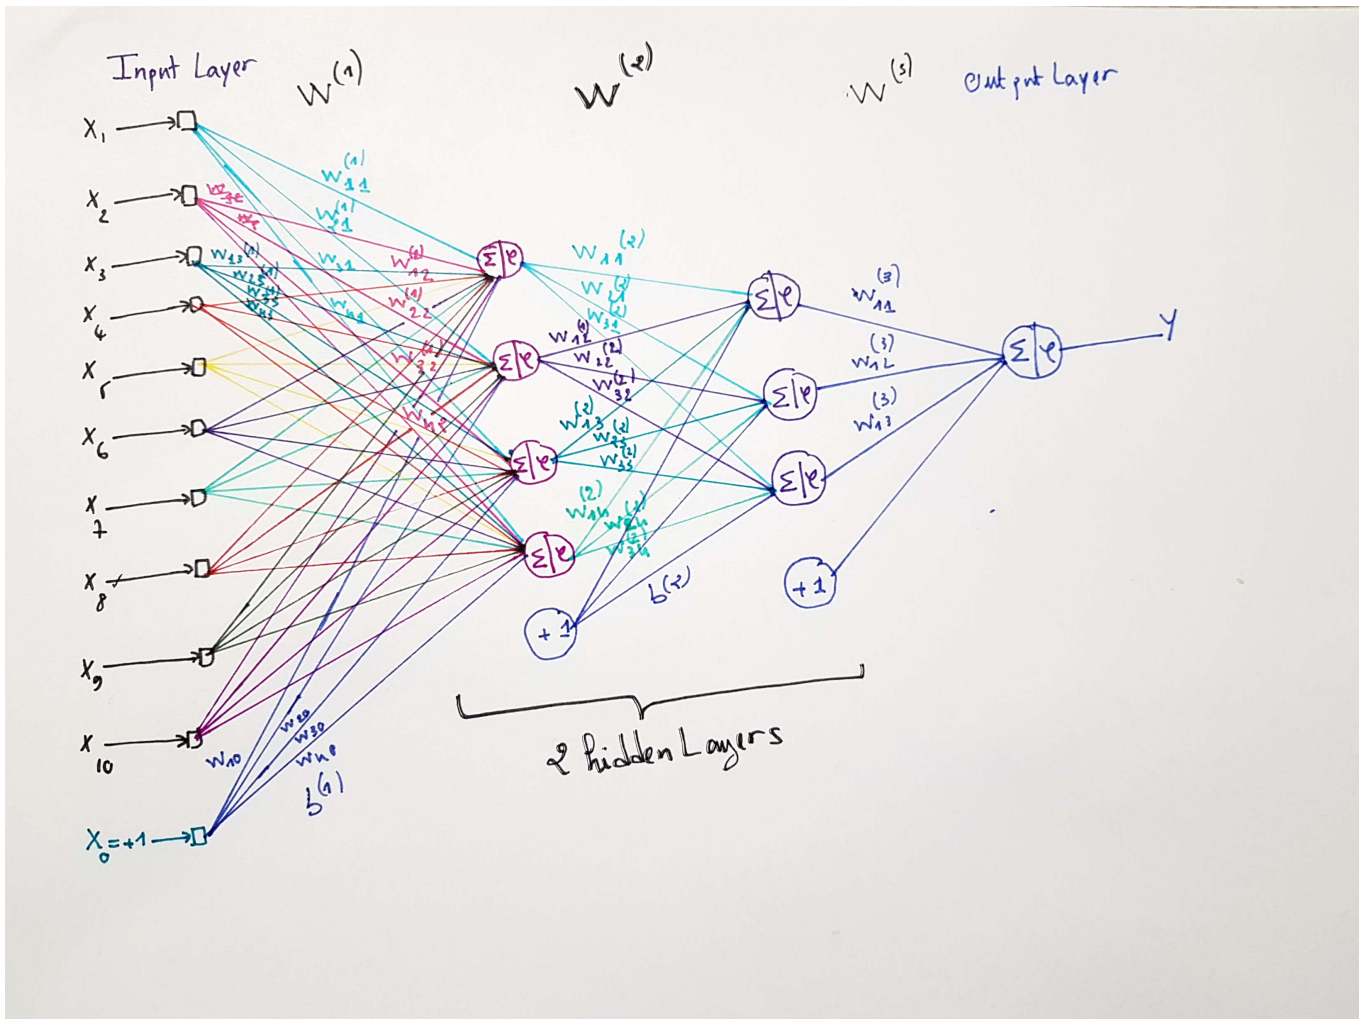 Input Layer
W(1)
W(2)
W(3)
Output Layer
X1
X2
X3
X4
X5
X6
X7
X8
X9
X10
X0=+1
W11(1)
W21(1)
W31
W41
W12(1)
W22(1)
W32(1)
W13(1)
W23(1)
W33(1)
W43
W10
W20
W30
W40
b(1)
Σ|φ
Σ|φ
Σ|φ
Σ|φ
+1
W11(2)
W21(2)
W31(2)
W12(2)
W22(2)
W32(2)
W13(2)
W23(2)
W33(2)
W14(2)
W24(2)
W34(2)
b(2)
Σ|φ
Σ|φ
Σ|φ
+1
W11(3)
W12(3)
W13(3)
Σ|φ
Y
2 hidden Layers